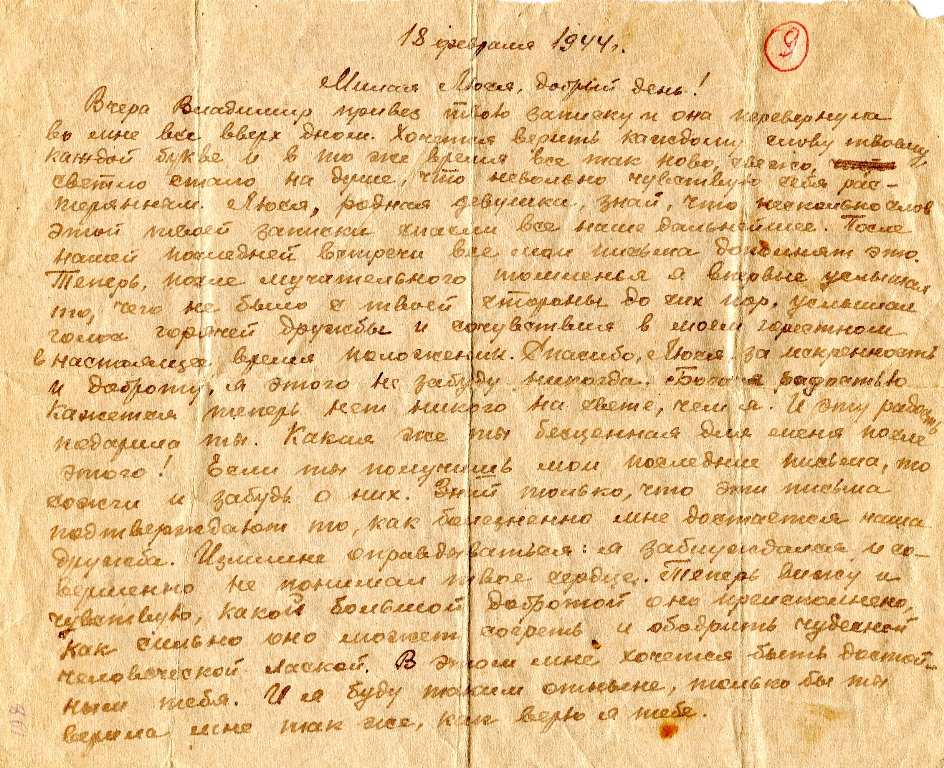 18 февраля 1944 г.
9
Милая Люся, добрый день!
Вчера Владимир привез твою записку и она перевернула
во мне все вверх дном. Хочется верить каждому слову твоему,
каждой букве и в то же время все так ново, свежо,
светло стало на душе, что невольно чувствую себя рас-
терянным. Люся, родная девушка, знай, что несколько слов
этой твоей записки спасли все наше дальнейшее. После
нашей последней встречи все мои письма дополнят это.
Теперь, после мучительного томленья я впервые услышал
то, чего не было с твоей стороны до сих пор, услышал
голос горячей дружбы и сочувствия в моем горестном
в настоящее время положении. Спасибо, Люся, за искренность
и доброту, я этого не забуду никогда. радостью
кажется теперь нет никого на свете, чем я. И эту радость
подарила ты. Какая же ты бесценная для меня после
этого! Если ты получишь мои последние письма, то
сожги и забудь о них. Знай только, что эти письма
подтверждают то, как болезненно мне достается наша
дружба. Излишне оправдываться: я заблуждался и со-
вершенно не понимал твое сердце. Теперь вижу и
чувствую, какой большой добротой оно преисполнено,
как сильно оно может согреть и ободрить чудесной
человеческой лаской. В этом мне хочется быть достой-
ным тебя. И я буду таким отныне, только бы ты
верила мне так же, как верю я тебе.